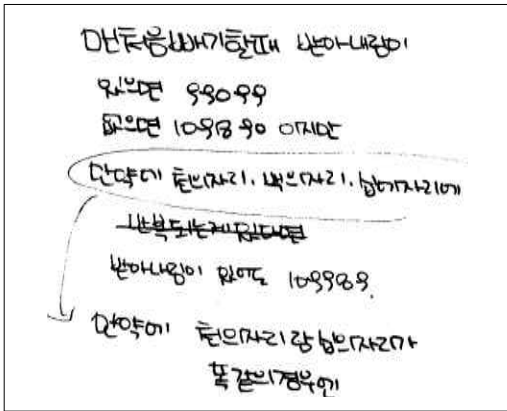 맨처음빼기할때 받아내림이
있으면 99099
없으면 109890 이지만
만약에 천의자리, 백의자리, 십에자리에
반복되는게 있다면
받아내림이 있어도 109989.
만약에 천의자리랑 십의자리가
똑같의경우엔